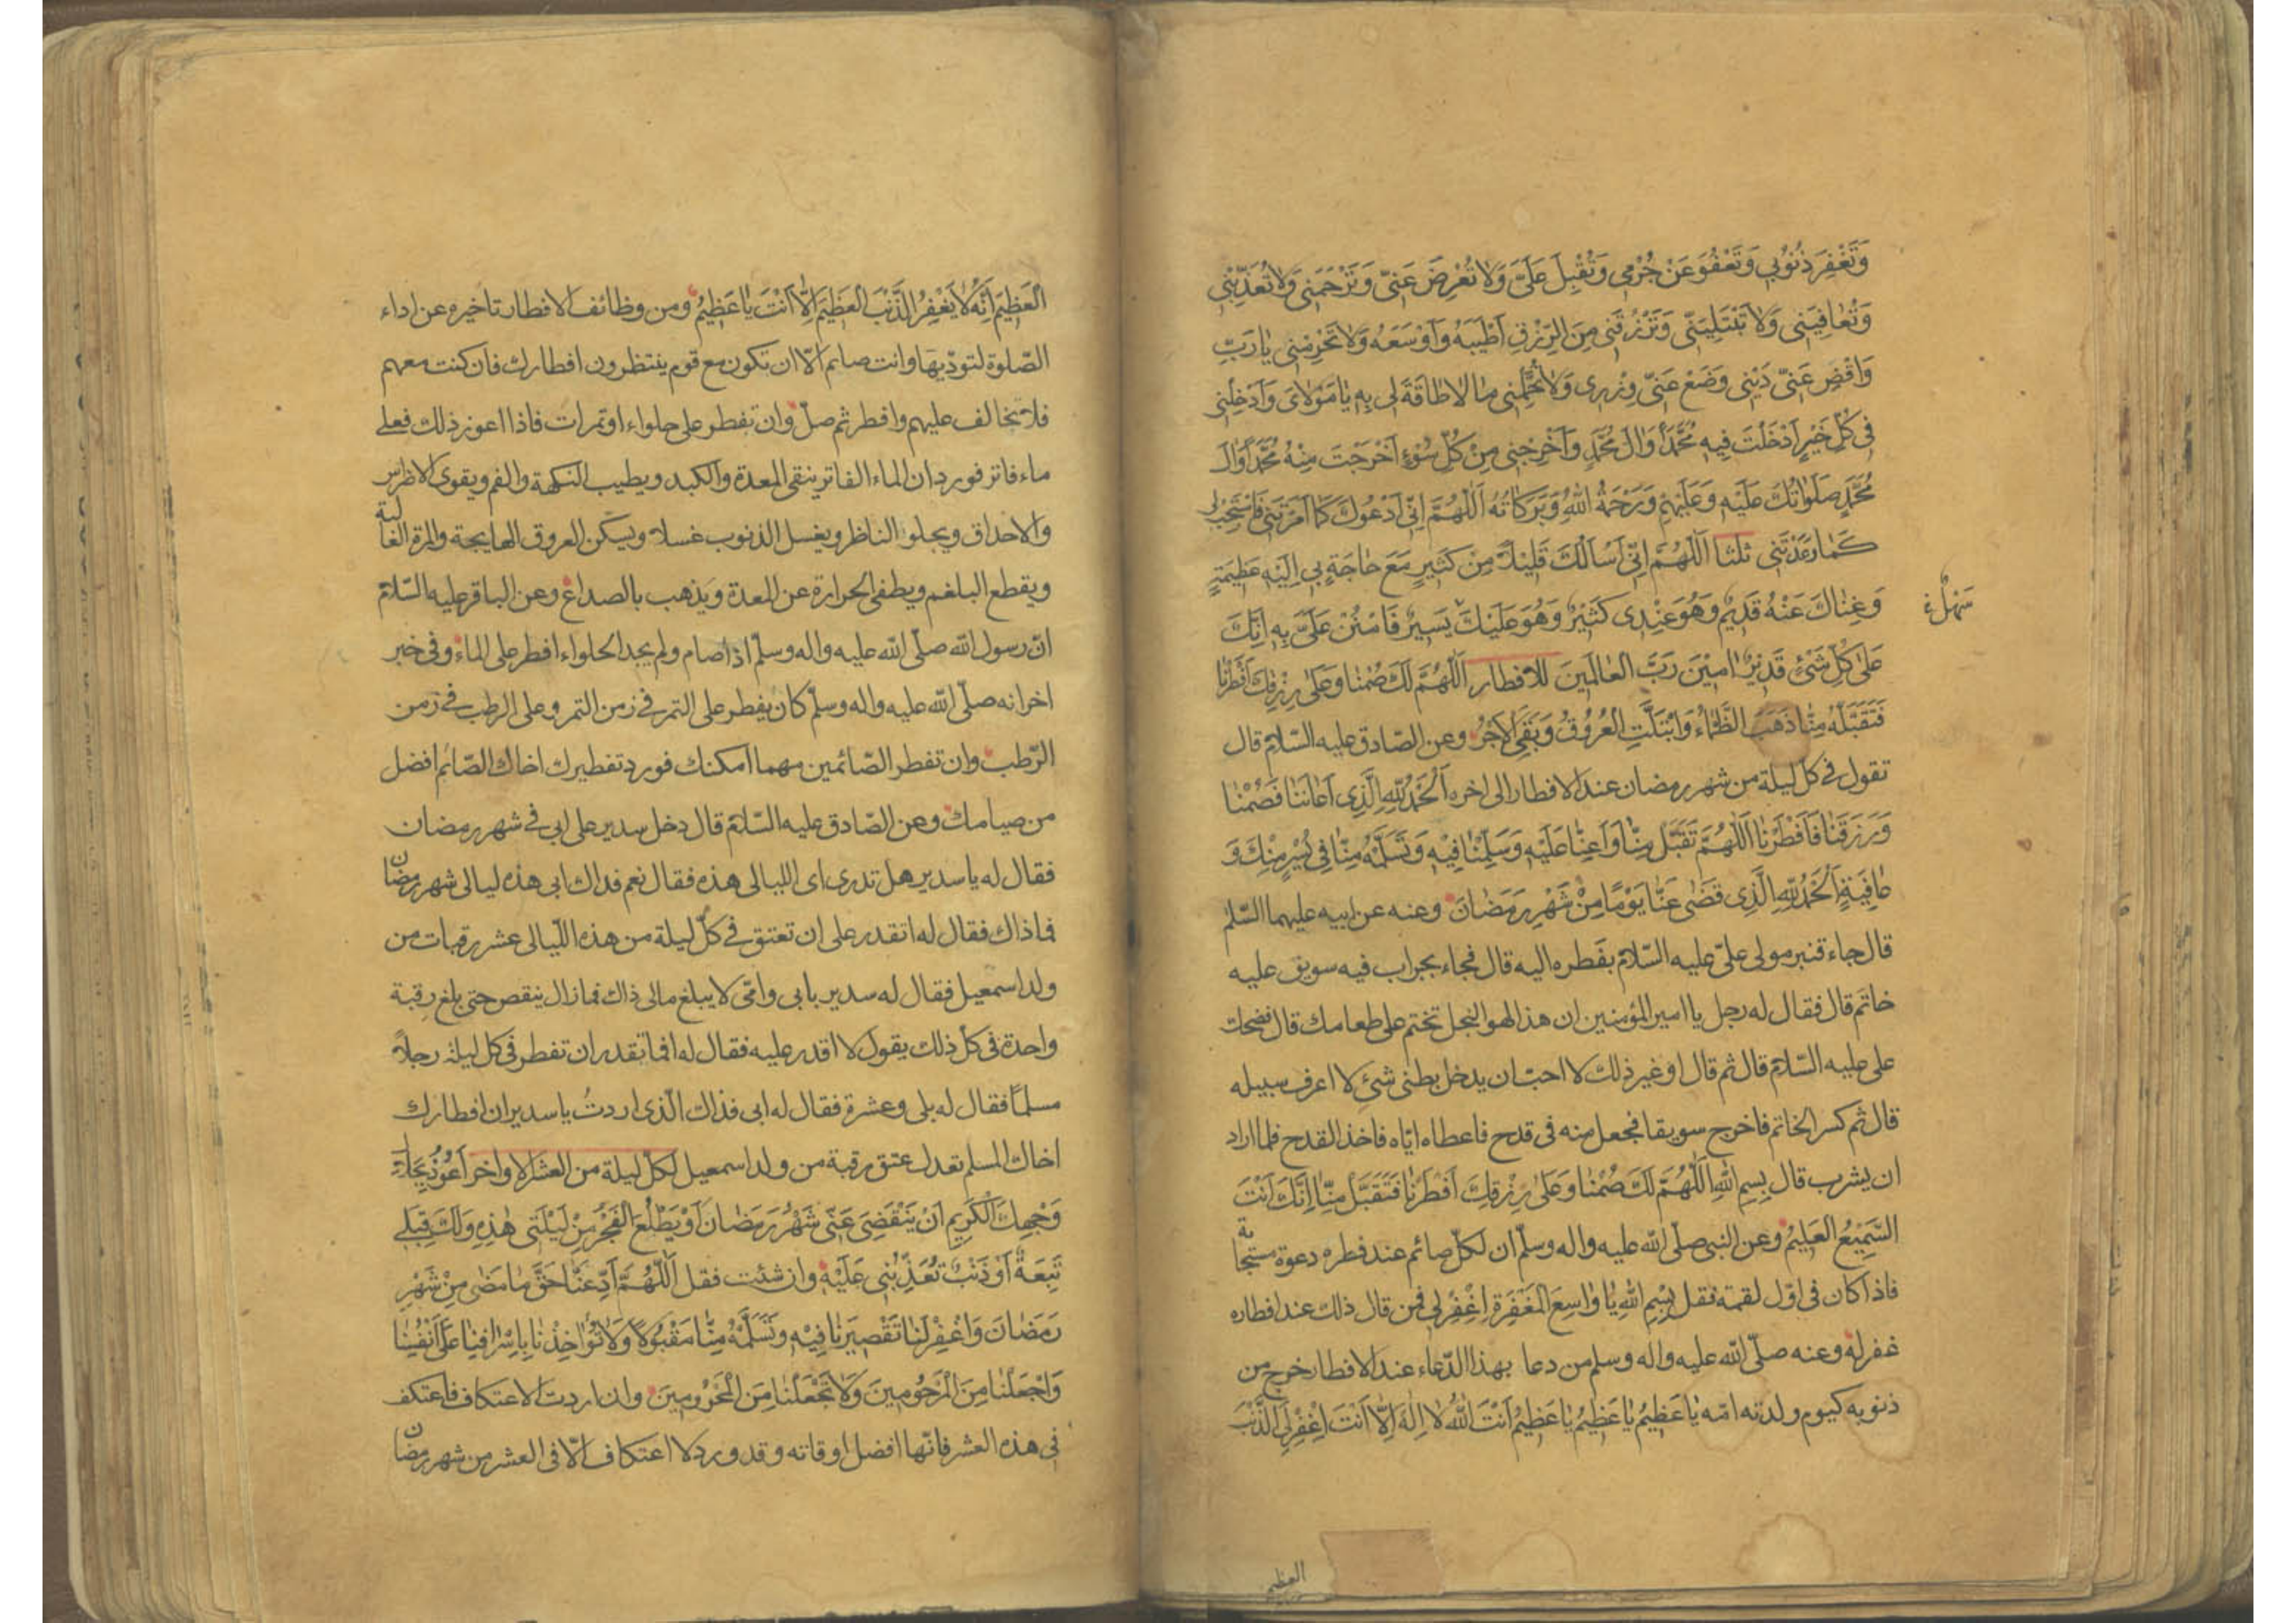 وَتَغْفِرَ ذُنُوبِي وَتَعْفُوَ عَنْ جُرْمِي وَتُقْبِلَ عَلَيَّ وَلَا تُعْرِضَ عَنِّي وَتَرْحَمَنِي وَلَا تُعَذِّبَنِي
وَتُعَافِيَنِي وَلَا تَبْتَلِيَنِّي وَتَرْزُقَنِي مِنَ الرِّزْقِ أَطْيَبَهُ وَأَوْسَعَهُ وَلَا تَحْرِمْنِي يَا رَبِّ
وَاقْضِ عَنِّي دَيْنِي وَضَعْ عَنِّي وِزْرِي وَلَا تُحَمِّلْنِي مَا لَا طَاقَةَ لِي بِهِ يَا مَوْلَايَ وَأَدْخِلْنِي
فِي كُلِّ خَيْرٍ أَدْخَلْتَ فِيهِ مُحَمَّداً وَآلَ مُحَمَّدٍ وَأَخْرِجْنِي مِنْ كُلِّ سُوْءٍ أَخْرَجْتَ مِنْهُ مُحَمَّداً وَآلَ
مُحَمَّدٍ صَلَوَاتُكَ عَلَيْهِ وَعَلَيْهِمْ وَرَحْمَةُ اللهِ وَبَرَكَاتُهُ اَللّٰهُمَّ إِنِّي أَدْعُوكَ كَمَا أَمَرْتَنِي فَاسْتَجِبْ لِي
كَمَا وَعَدْتَنِي ثلثا اَللّٰهُمَّ إِنِّي أَسْأَلُكَ قَلِيلاً مِنْ كَثِيرٍ مَعَ حَاجَةٍ بِي إِلَيْهِ عَظِيمَةٍ
وَغِنَاكَ عَنْهُ قَدِيمٌ وَهُوَ عِنْدِي كَثِيرٌ وَهُوَ عَلَيْكَ يَسِيرٌ فَامْنُنْ عَلَيَّ بِهِ إِنَّكَ
سَهْلٌ
عَلَى كُلِّ شَيْءٍ قَدِيرٌ آمِينَ رَبَّ الْعَالَمِينَ للافطار اَللّٰهُمَّ لَكَ صُمْنَا وَعَلَى رِزْقِكَ أَفْطَرْنَا
فَتَقَبَّلْهُ مِنَّا ذَهَبَ الظَّمَاءُ وَابْتَلَّتِ الْعُرُوقُ وَبَقِيَ الْأَجْرُ وعن الصّادق عليه السّلام قال
تقول في كلّ ليلة من شهر رمضان عند الافطار الى اخره اَلْحَمْدُ لِلّٰهِ الَّذِي أَعَانَنَا فَصُمْنَا
وَرَزَقَنَا فَأَفْطَرْنَا اَللّٰهُمَّ تَقَبَّلْ مِنَّا وَأَعِنَّا عَلَيْهِ وَسَلِّمْنَا فِيهِ وَتَسَلَّمْهُ مِنَّا فِي يُسْرٍ مِنْكَ وَ
عَافِيَةٍ اَلْحَمْدُ لِلّٰهِ الَّذِي قَضَى عَنَّا يَوْمًا مِنْ شَهْرِ رَمَضَانَ وعنه عن ابيه عليهما السّلم
قال جاء قنبر مولى عليّ عليه السّلام بفطره اليه قال فجاء بجراب فيه سويق عليه
خاتم قال فقال له رجل يا امير المؤمنين ان هذا لهو البخل تختم على طعامك قال فضحك
علي عليه السّلام قال ثم قال او غير ذلك لا احبّ ان يدخل بطني شئ لا اعرف سبيله
قال ثم كسر الخاتم فاخرج سويقا فجعل منه في قدح فاعطاه ايّاه فاخذ القدح فلما اراد
ان يشرب قال بِسْمِ اللهِ اَللّٰهُمَّ لَكَ صُمْنَا وَعَلَى رِزْقِكَ أَفْطَرْنَا فَتَقَبَّلْ مِنَّا إِنَّكَ أَنْتَ
السَّمِيعُ الْعَلِيمُ وعن النبي صلّى الله عليه واله وسلّم ان لكلّ صائم عند فطره دعوة مستجابة
فاذا كان في اوّل لقمة فقل بِسْمِ اللهِ يَا وَاسِعَ الْمَغْفِرَةِ اِغْفِرْ لِي فمن قال ذلك عند افطاره
غفر له وعنه صلّى الله عليه واله وسلم من دعا بهذا الدّعاء عند الافطار خرج من
ذنوبه كيوم ولدته امّه يَا عَظِيمُ يَا عَظِيمُ يَا عَظِيمُ أَنْتَ اللهُ لَا إِلٰهَ إِلَّا أَنْتَ اِغْفِرْ لِيَ الذَّنْبَ
العظيم
الْعَظِيمَ إِنَّهُ لَا يَغْفِرُ الذَّنْبَ الْعَظِيمَ إِلَّا أَنْتَ يَا عَظِيمُ ومن وظائف الافطار تاخيره عن اداء
الصّلوة لتودّيها وانت صايم الّا ان تكون مع قوم ينتظرون افطارك فان كنت معهم
فلا تخالف عليهم وافطر ثم صلّ وان تفطر على حلواء او تمرات فاذا اعوز ذلك فعلى
ماء فاتر فورد ان الماء الفاتر ينقي المعدة والكبد ويطيب النكهة والفم ويقوي الاضراس
والاحداق ويجلوا الناظر ويغسل الذنوب غسلا ويسكن العروق الهايجة والمرة الغالبة
ويقطع البلغم ويطفي الحرارة عن المعدة ويذهب بالصداع وعن الباقر عليه السّلام
انّ رسول الله صلّى الله عليه واله وسلّم اذا صام ولم يجد الحلواء افطر على الماء وفي خبر
اخر انه صلّى الله عليه واله وسلّم كان يفطر على التمر في زمن التمر وعلى الرطب في زمن
الرّطب وان تفطر الصّائمين مهما امكنك فورد تفطيرك اخاك الصّائم افضل
من صيامك وعن الصّادق عليه السّلام قال دخل سدير على ابي في شهر رمضان
فقال له يا سدير هل تدري اى الليالي هذه فقال نعم فداك ابي هذه ليالي شهر رمضان
فما ذاك فقال له اتقدر على ان تعتق في كلّ ليلة من هذه اللّيالي عشر رقبات من
ولد اسمعيل فقال له سدير بابي وامّي لا يبلغ مالي ذاك فما زال ينقص حتى بلغ رقبة
واحدة في كل ذلك يقول لا اقدر عليه فقال له افما تقدر ان تفطر في كل ليلة رجلاً
مسلماً فقال له بلى وعشرة فقال له ابي فذاك الّذي اردتُ يا سدير ان افطارك
اخاك المسلم تعدل عتق رقبة من ولد اسمعيل لكلّ ليلة من العشر الاواخر أَعُوذُ بِجَلَالِ
وَجْهِكَ الْكَرِيمِ أَنْ يَنْقَضِيَ عَنِّي شَهْرُ رَمَضَانَ أَوْ يَطْلُعَ الْفَجْرُ مِنْ لَيْلَتِي هٰذِهِ وَلَكَ قِبَلِي
تَبِعَةٌ أَوْ ذَنْبٌ تُعَذِّبُنِي عَلَيْهِ وان شئت فقل اَللّٰهُمَّ أَدِّ عَنَّا حَقَّ مَا مَضَى مِنْ شَهْرِ
رَمَضَانَ وَاغْفِرْ لَنَا تَقْصِيرَنَا فِيهِ وَتَسَلَّمْهُ مِنَّا مَقْبُولاً وَلَا تُؤَاخِذْنَا بِإِسْرَافِنَا عَلَى أَنْفُسِنَا
وَاجْعَلْنَا مِنَ الْمَرْحُومِينَ وَلَا تَجْعَلْنَا مِنَ الْمَحْرُومِينَ وان اردت الاعتكاف فاعتكف
في هذه العشر فانّها افضل اوقاته وقد ورد لا اعتكاف الّا في العشر من شهر رمضان